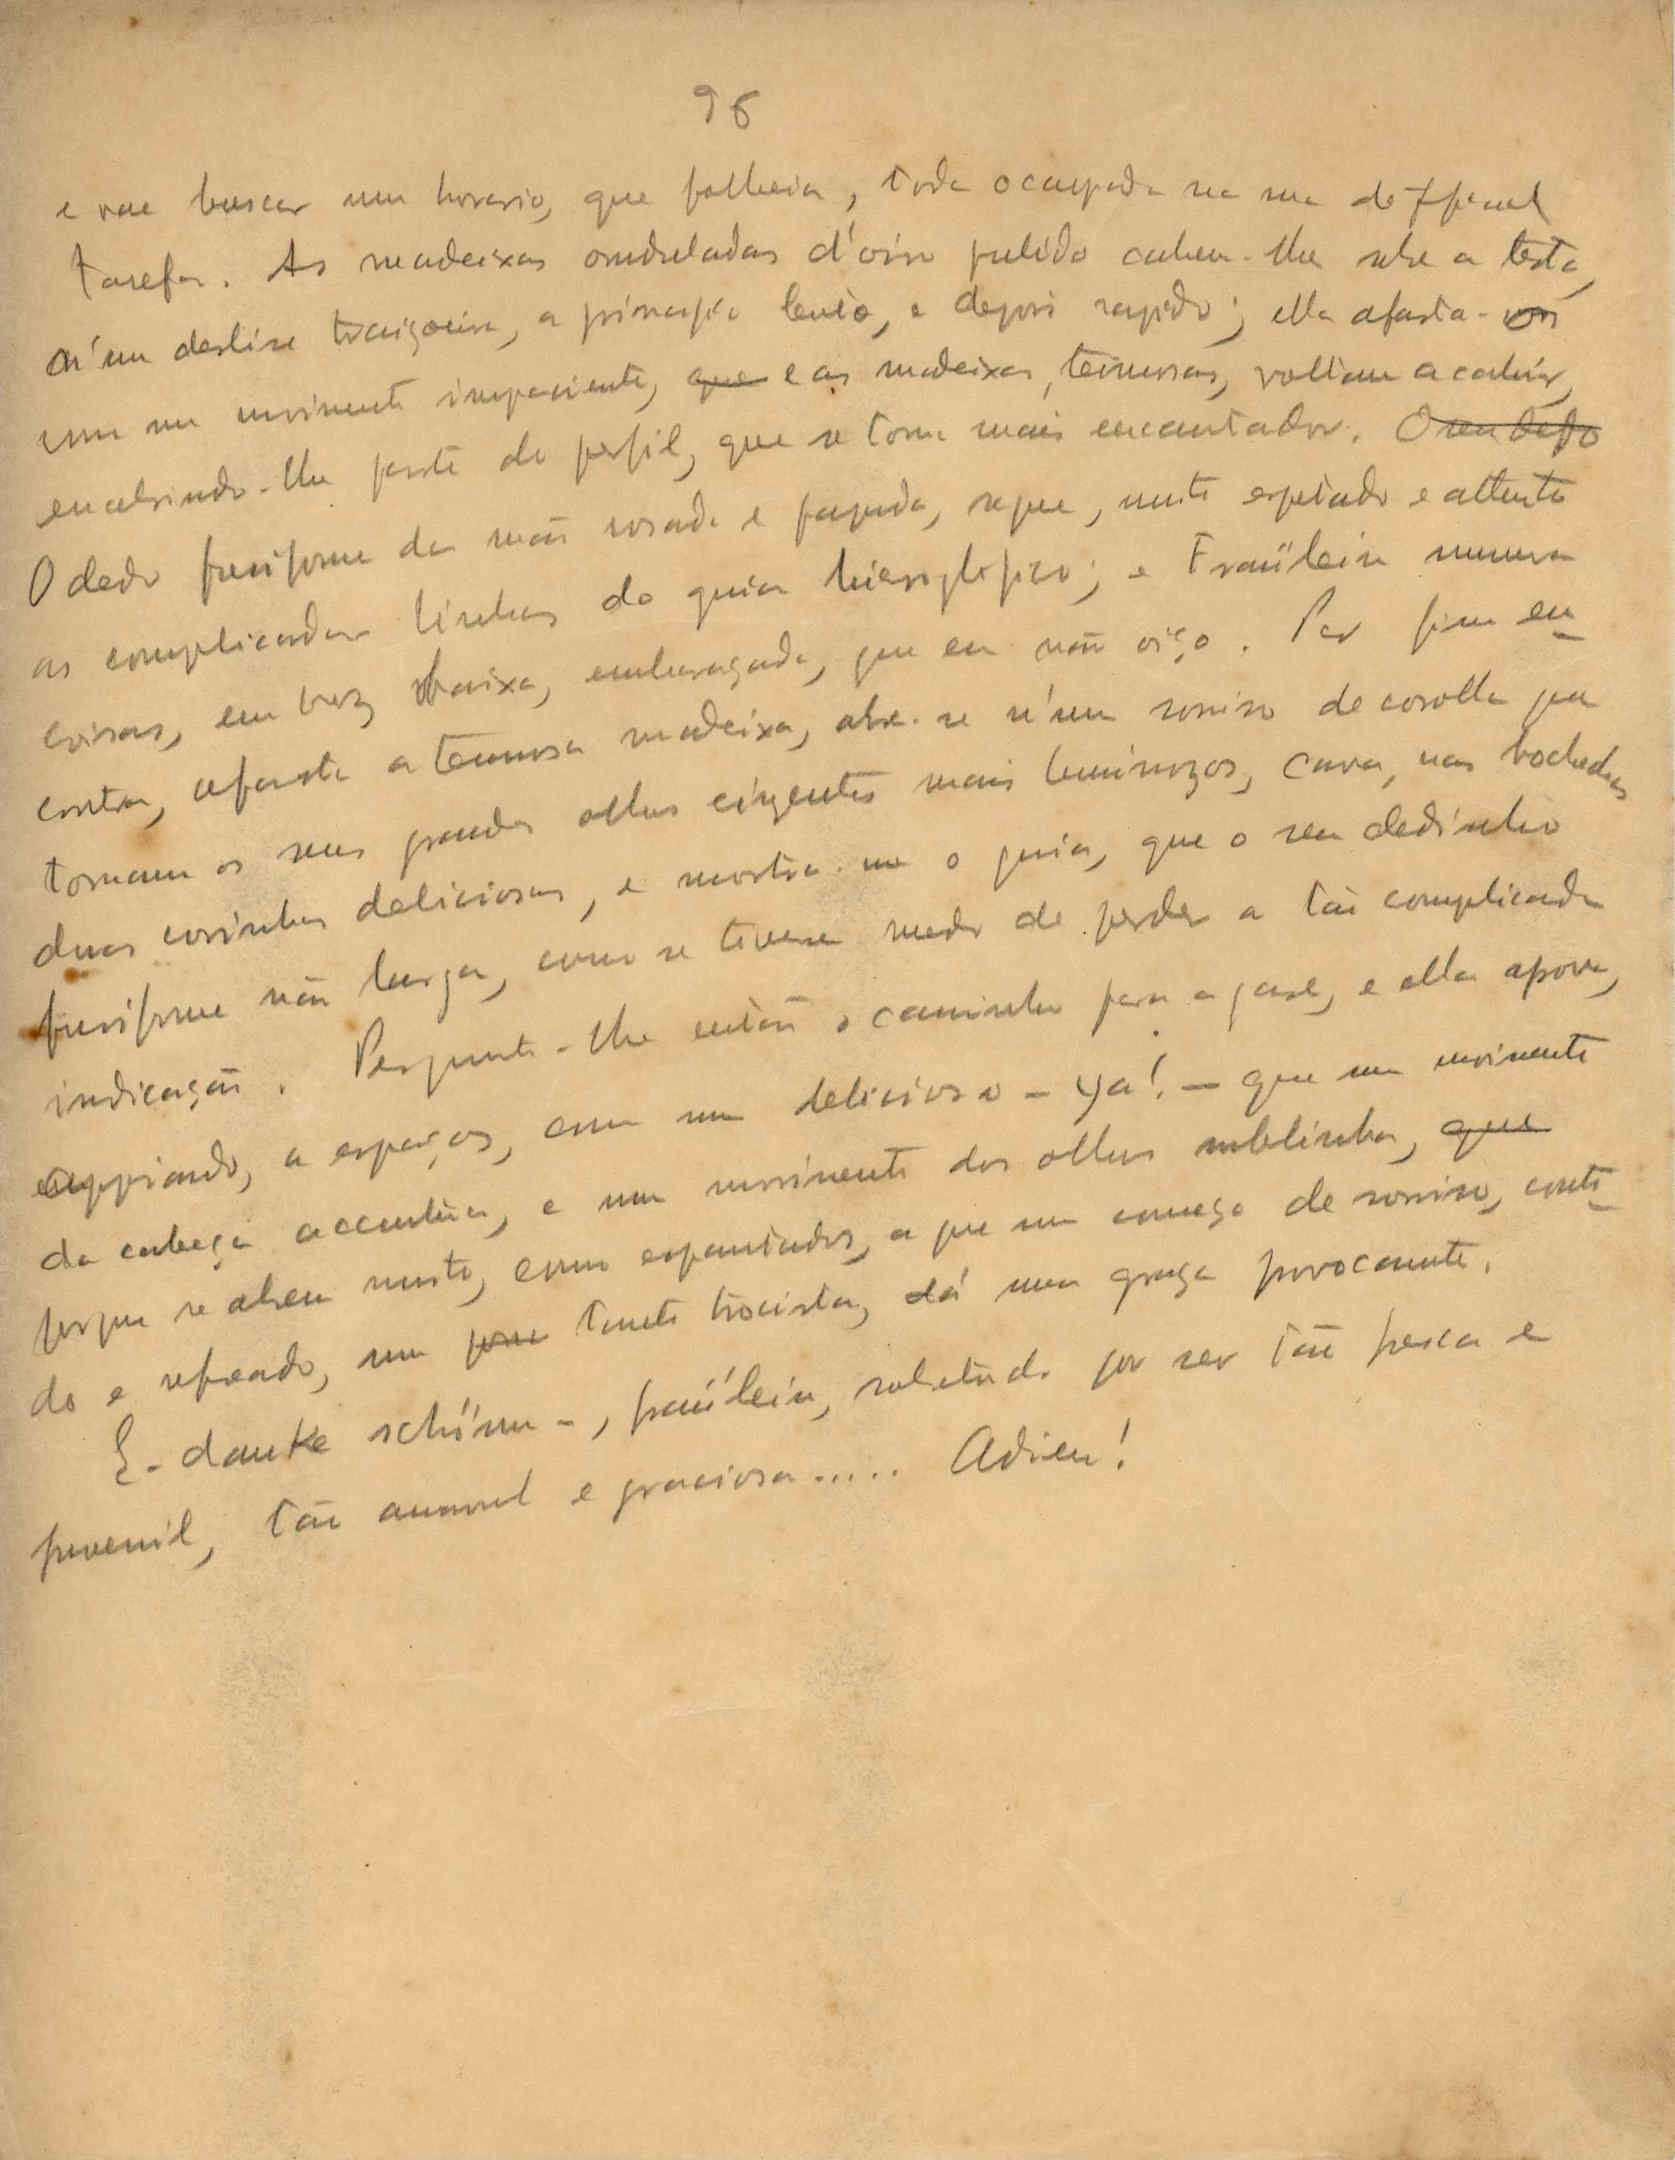 96
e vae buscar um horario, que folheia, toda occupada na sua difficil
tarefa. As madeixas onduladas d'oiro pulido cahem-lhe sobre a testa,
n'um deslise traiçoeiro, a principio lento, e depois rapido; ella afasta-as
com um movimento impaciente, que e as madeixas, teimosas, voltam a cahir,
encobrindo-lhe parte do perfil, que se torna mais encantador. O seu dedo
O dedo fusiforme da mão rosada e papuda, segue, muito espetado e attento
as complicadas linhas do guia hieroglifico; e Fraülein murmura
coisas, em voz baixa, embaraçada, que eu não oiço. Por fim en-
contra, afasta a teimosa madeixa, abre-se n'um sorriso de corolla que
tornam os seus grandes olhos cinzentos mais luminozos, cava, nas bochechas
duas covinhas deliciosas, e mostra-me o guia, que o seu dedinho
fusiforme não larga, como se tivesse medo de perder a tão complicada
indicação. Pergunto-lhe então o caminho para a gare, e ella aprova,
appoiando, a espaços, com um delicioso - ya! - que um movimento
da cabeça accentúa, e um movimento dos olhos sublinha, que
porque se abrem muito, como espantados, a que um começo de sorriso, conti-
do e refreado, um pouco tanto trocista, dá uma graça provocante.
E - danke schönn -, fraülein, sobretudo por ser tão fresca e
juvenil, tão amavel e graciosa..... Adieu!